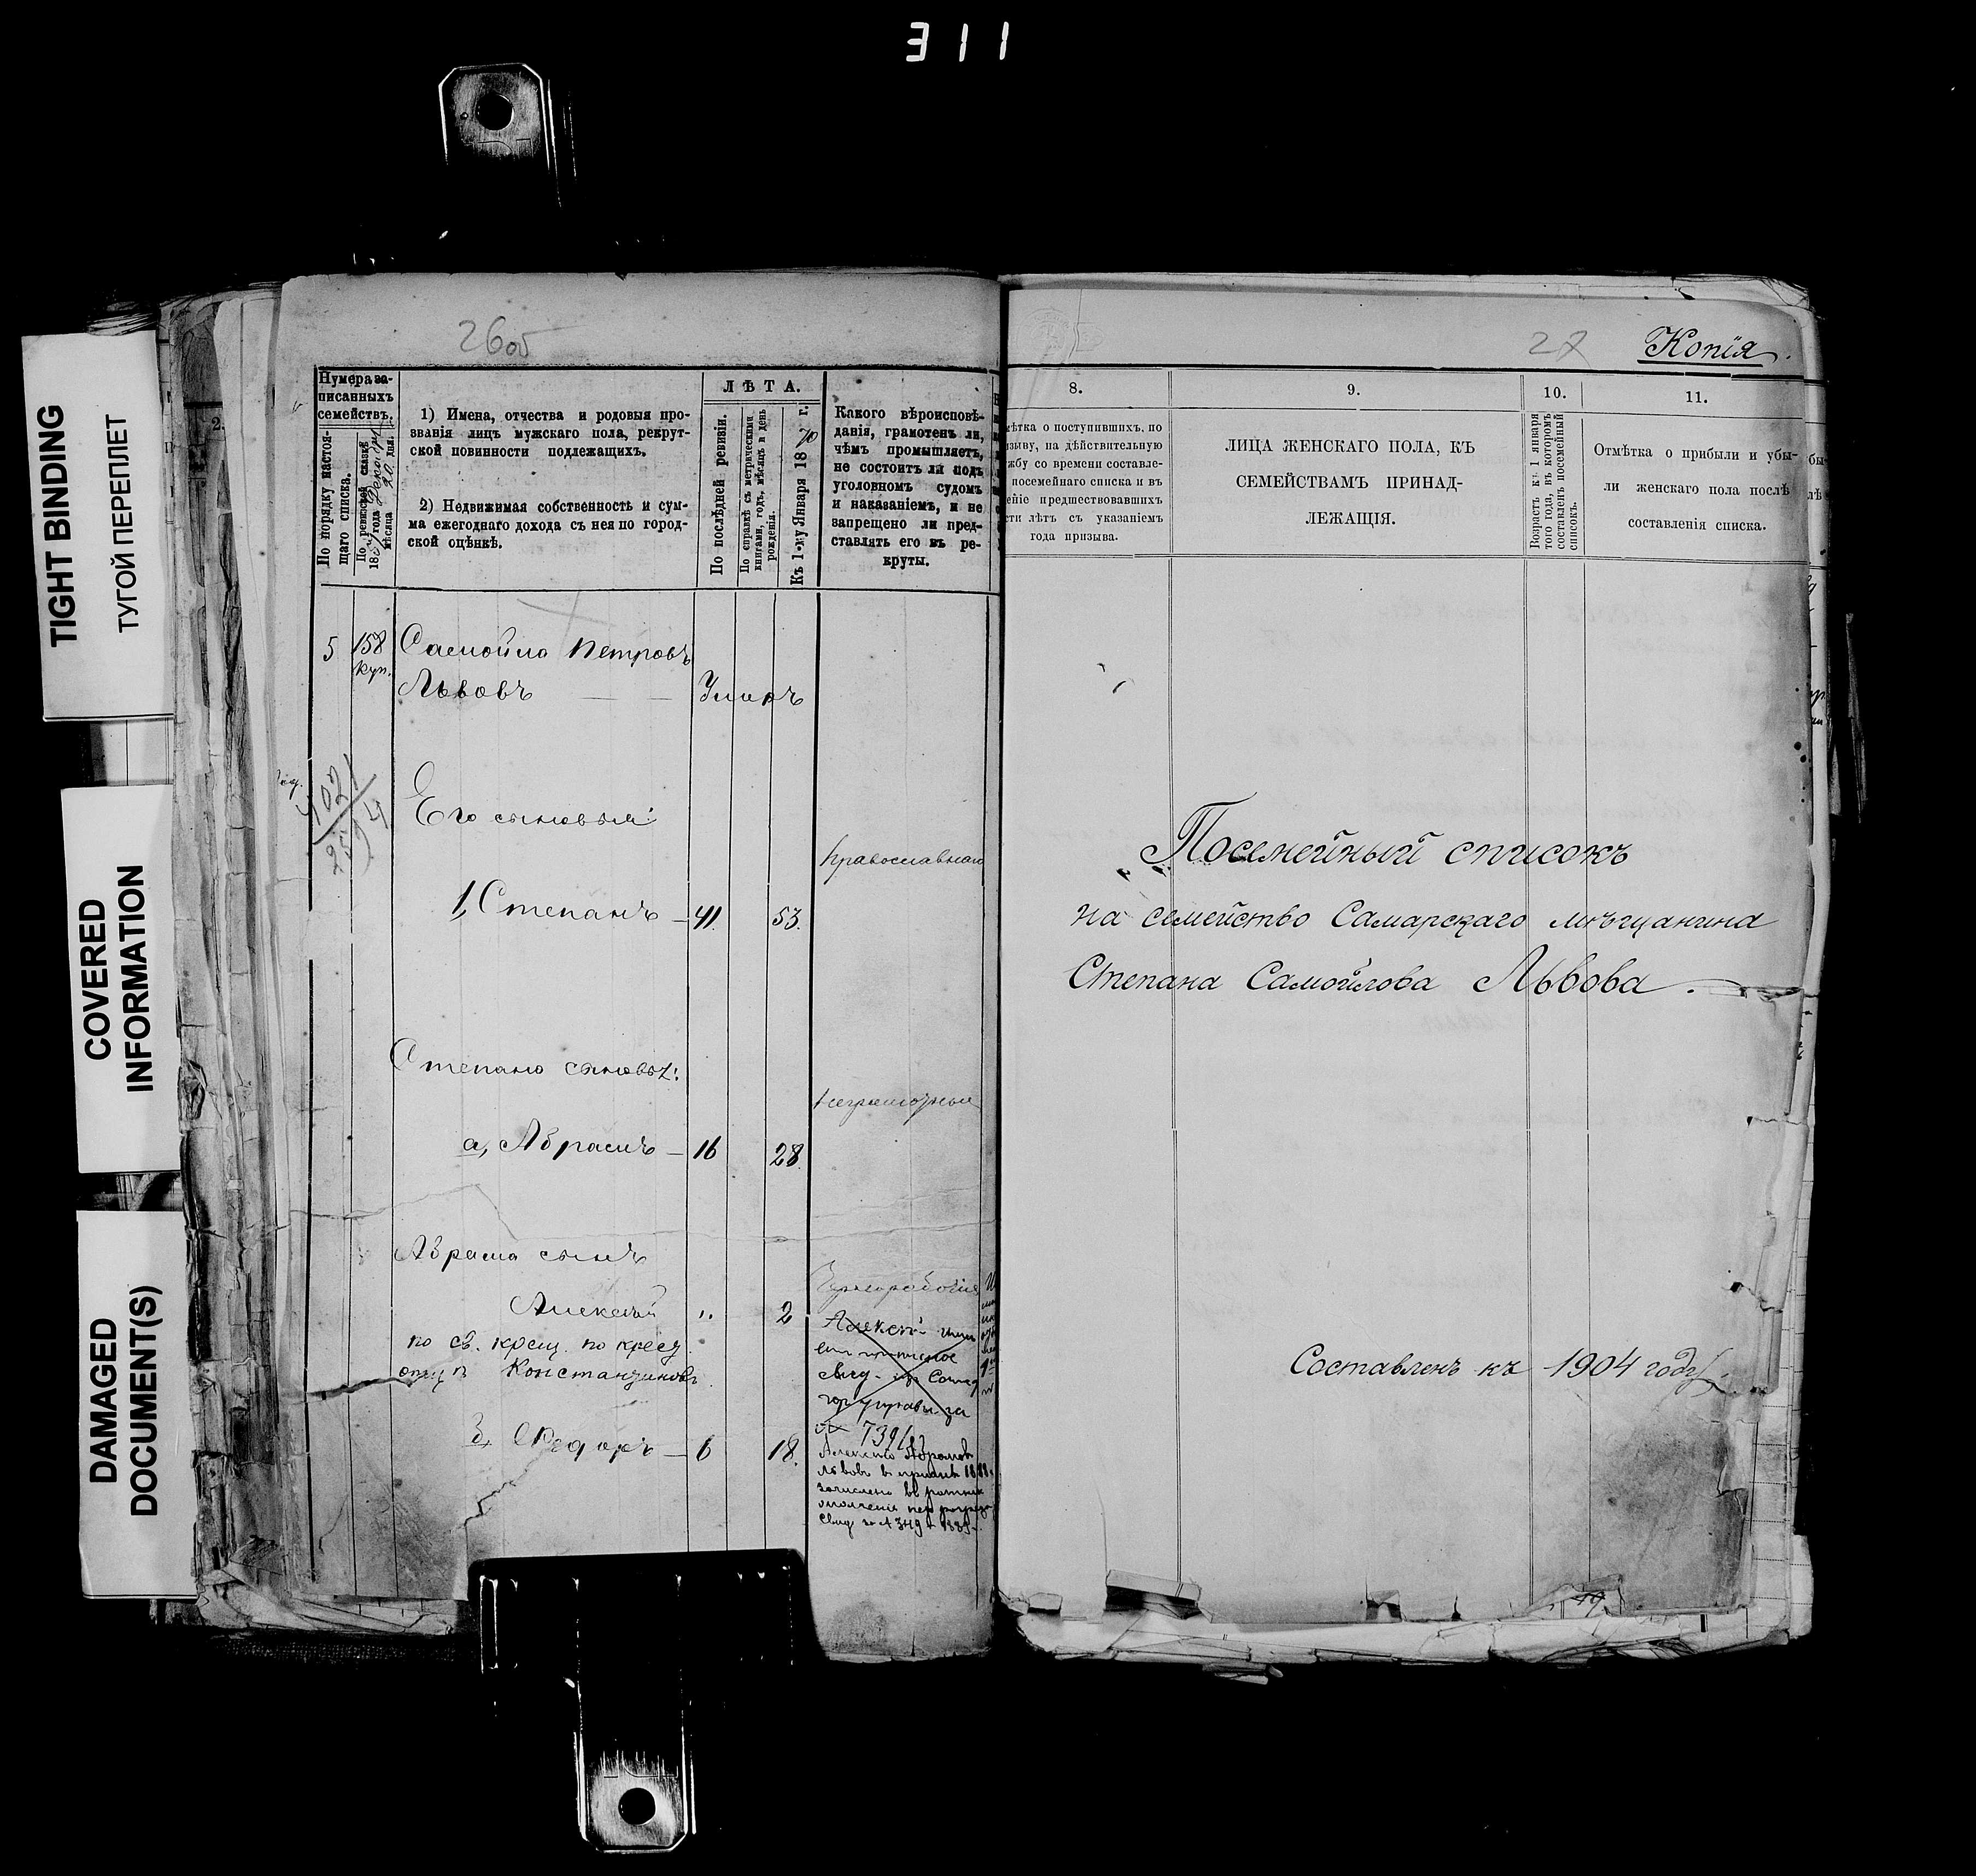 311
TIGHT BINDING
ТУГОЙ ПЕРЕПЛЕТ
COVERED
INFORMATION
DAMAGED
DOCUMENT(S)
26об
Нумера за-
писанныхъ
семействъ.
По порядку настоя-
щаго списка.
По ревизской сказкѣ
18 года
мѣсяца 20 дня.
1) Имена, отчества и родовыя про-
званія лицъ мужскаго пола, рекрут-
ской повинности подлежащихъ.
2) Недвижимая собственность и сум-
ма ежегоднаго дохода съ нея по город-
ской оцѣнкѣ.
ЛѢТА.
По послѣдней ревизіи.
По справкѣ съ метрическими
книгами, годъ, мѣсяцъ и день
рожденія.
Къ 1-му Января 1870 г.
Какого вѣроисповѣ-
данія, грамотенъ ли,
чѣмъ промышляетъ,
не состоитъ ли подъ
уголовномъ судомъ
и наказаніемъ, и не
запрещено ли пред-
ставлять его въ ре-
круты.
5 158 Самойло Петровъ
куп.
Львовъ — — Умиръ
4021
2594
Его сыновья:
Православнаго
1, Степанъ — 41. 53.
Степана сыновья:
Неграмотный
а, Абрамъ — 16 28.
Абрама сынъ
Чернорабочій
Алексѣй „ 2
по св. крещ. по крест.
отцѣ Константиновъ
Алексѣй
гор управы за
№ 7391
Ѳедоръ — 6 18.
Алексѣй Абрамовъ
Львовъ въ призывъ 188
зачисленъ въ ратники
ополченія
Свид за № 349
27
Копія.
8.
9.
10.
11.
ѣтка о поступившихъ, по
изыву, на дѣйствительную
жбу со времени составле-
посемейнаго списка и въ
еніе предшествовавшихъ
сти лѣтъ съ указаніемъ
года призыва.
ЛИЦА ЖЕНСКАГО ПОЛА, КЪ
СЕМЕЙСТВАМЪ ПРИНАД-
ЛЕЖАЩІЯ.
Возрастъ къ 1 января
того года, въ которомъ
составленъ посемейный
списокъ.
Отмѣтка о прибыли и убы-
ли женскаго пола послѣ
составленія списка.
Посемейный списокъ
на семейство Самарскаго мѣщанина
Степана Самойлова Львова.
Составленъ къ 1904 году.